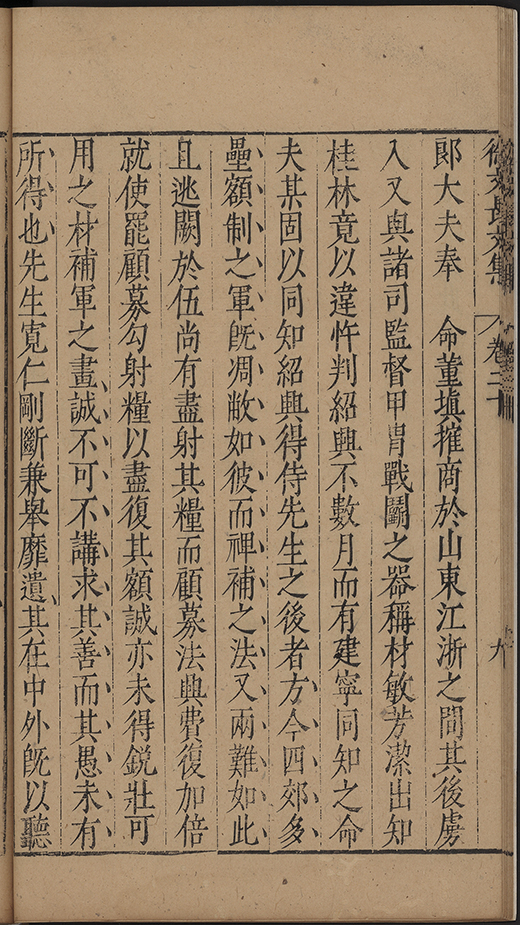 徐文長文集
卷二十
九
郎大夫奉　命董塡搉商於山東江浙之間其後虜
入又與諸司監督甲冑戰鬭之器稱材敏芳潔出知
桂林竟以違忤判紹興不數月而有建寧同知之命
夫某固以同知紹興得侍先生之後者方今四郊多
壘額制之軍旣凋敝如彼而禆補之法又兩難如此
且逃闕於伍尚有盡射其糧而顧募法興費復加倍
就使罷顧募勾射糧以盡復其額誠亦未得銳壯可
用之材補軍之畫誠不可不講求其善而其愚未有
所得也先生寛仁剛斷兼舉靡遺其在中外旣以聽